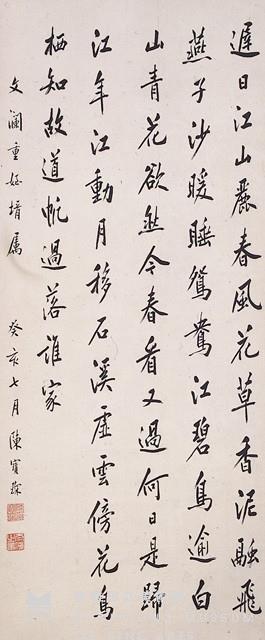 遲日江山麗春風花草香泥融飛
燕子沙暖睡鴛鴦江碧鳥逾白
山青花欲然今春看又過何日是歸
江年江動月移石溪虛雲傍花鳥
栖知故道帆過落誰家
文瀾重姪壻屬 癸亥七月陳寶琛